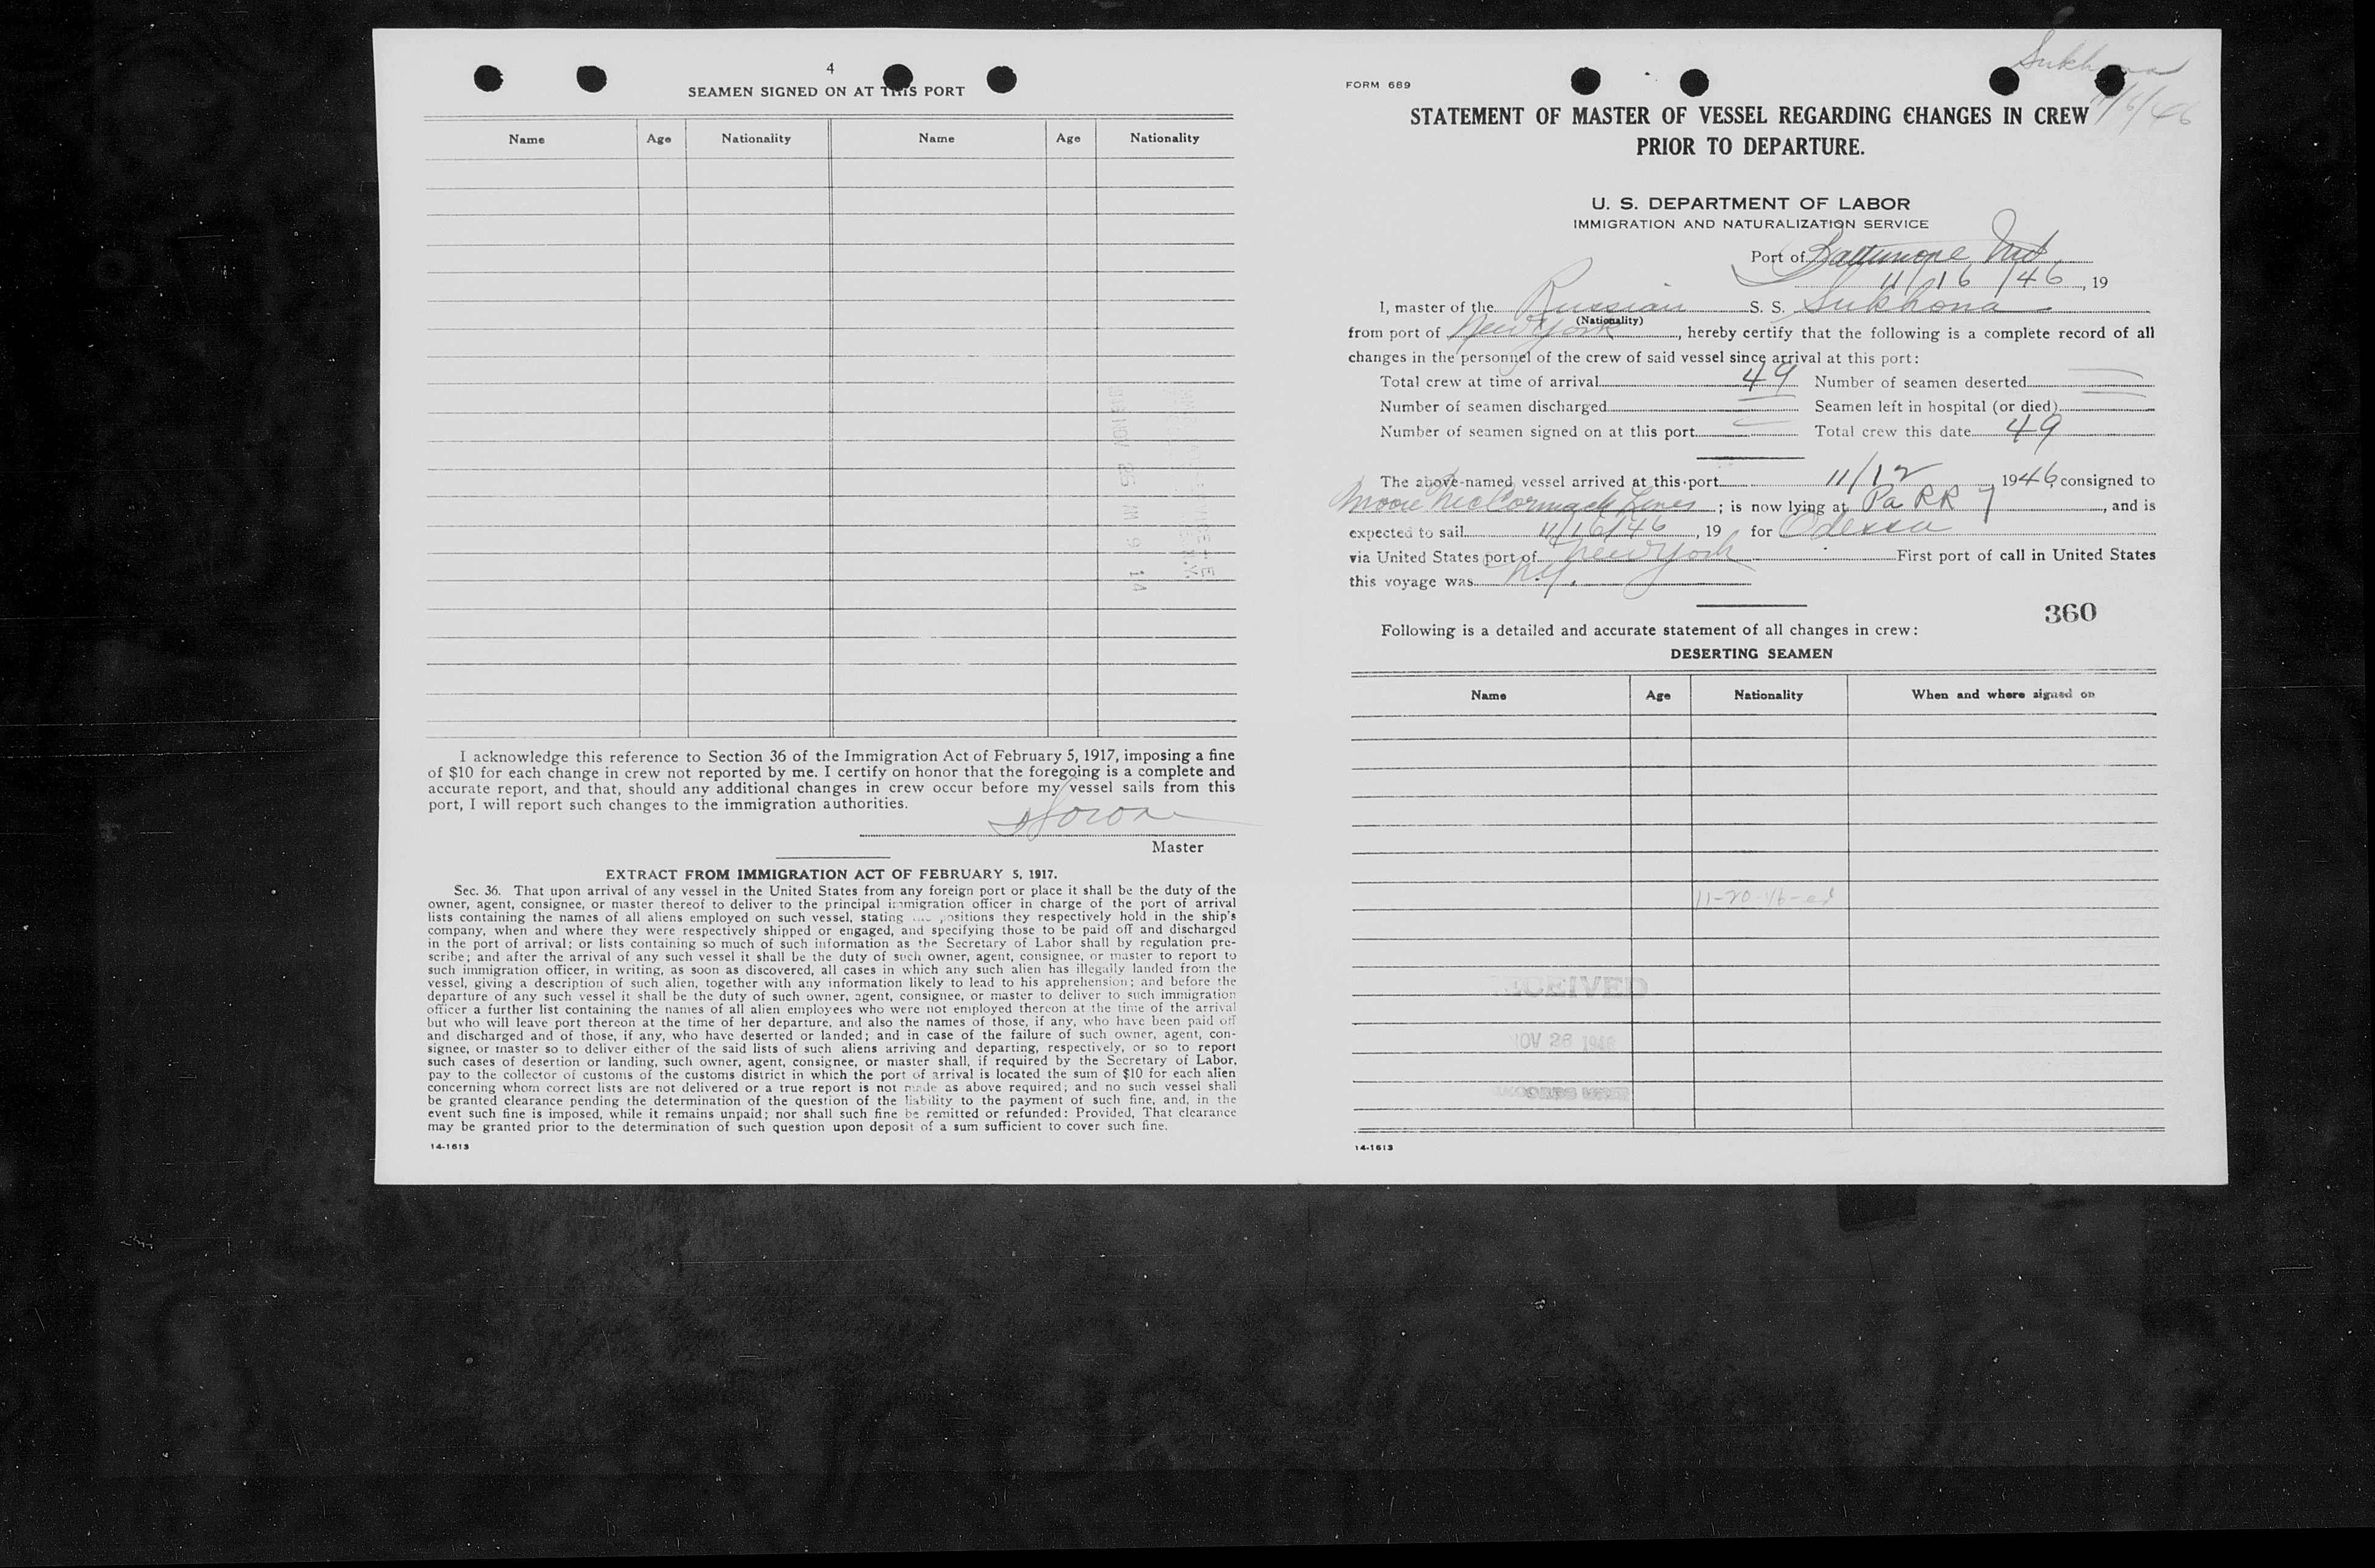 4
SEAMEN SIGNED ON AT THIS PORT
Name Age Nationality Name Age Nationality
I acknowledge this reference to Section 36 of the Immigration Act of February 5, 1917, imposing a fine
of $10 for each change in crew not reported by me. I certify on honor that the foregoing is a complete and
accurate report, and that, should any additional changes in crew occur before my vessel sails from this
port, I will report such changes to the immigration authorities.
Master
EXTRACT FROM IMMIGRATION ACT OF FEBRUARY 5, 1917.
Sec. 36. That upon arrival of any vessel in the United States from any foreign port or place it shall be the duty of the
owner, agent, consignee, or master thereof to deliver to the principal immigration officer in charge of the port of arrival
lists containing the names of all aliens employed on such vessel, stating the positions they respectively hold in the ship's
company, when and where they were respectively shipped or engaged, and specifying those to be paid off and discharged
in the port of arrival; or lists containing so much of such information as the Secretary of Labor shall by regulation pre-
scribe; and after the arrival of any such vessel it shall be the duty of such owner, agent, consignee, or master to report to
such immigration officer, in writing, as soon as discovered, all cases in which any such alien has illegally landed from the
vessel, giving a description of such alien, together with any information likely to lead to his apprehension; and before the
departure of any such vessel it shall be the duty of such owner, agent, consignee, or master to deliver to such immigration
officer a further list containing the names of all alien employees who were not employed thereon at the time of the arrival
but who will leave port thereon at the time of her departure, and also the names of those, if any, who have been paid off
and discharged and of those, if any, who have deserted or landed; and in case of the failure of such owner, agent, con-
signee, or master so to deliver either of the said lists of such aliens arriving and departing, respectively, or so to report
such cases of desertion or landing, such owner, agent, consignee, or master shall, if required by the Secretary of Labor,
pay to the collector of customs of the customs district in which the port of arrival is located the sum of $10 for each alien
concerning whom correct lists are not delivered or a true report is not made as above required; and no such vessel shall
be granted clearance pending the determination of the question of the liability to the payment of such fine, and, in the
event such fine is imposed, while it remains unpaid; nor shall such fine be remitted or refunded: Provided, That clearance
may be granted prior to the determination of such question upon deposit of a sum sufficient to cover such fine.
14-1613
Sukhona
11/16/46
FORM 689
STATEMENT OF MASTER OF VESSEL REGARDING CHANGES IN CREW
PRIOR TO DEPARTURE.
U. S. DEPARTMENT OF LABOR
IMMIGRATION AND NATURALIZATION SERVICE
Port of Baltimore Md
11/16/46, 19
I, master of the Russian S. S. Sukhona
(Nationality)
from port of New York, hereby certify that the following is a complete record of all
changes in the personnel of the crew of said vessel since arrival at this port:
Total crew at time of arrival 49 Number of seamen deserted —
Number of seamen discharged — Seamen left in hospital (or died) —
Number of seamen signed on at this port — Total crew this date 49
The above-named vessel arrived at this port 11/12, 1946, consigned to
Moore McCormack Lines; is now lying at Pa RR 7, and is
expected to sail 11/16/46, 19 for Odessa
via United States port of New York First port of call in United States
this voyage was N.Y.
360
Following is a detailed and accurate statement of all changes in crew:
DESERTING SEAMEN
Name Age Nationality When and where signed on
11-20-46-ed
RECEIVED
NOV 26 1946
14-1613